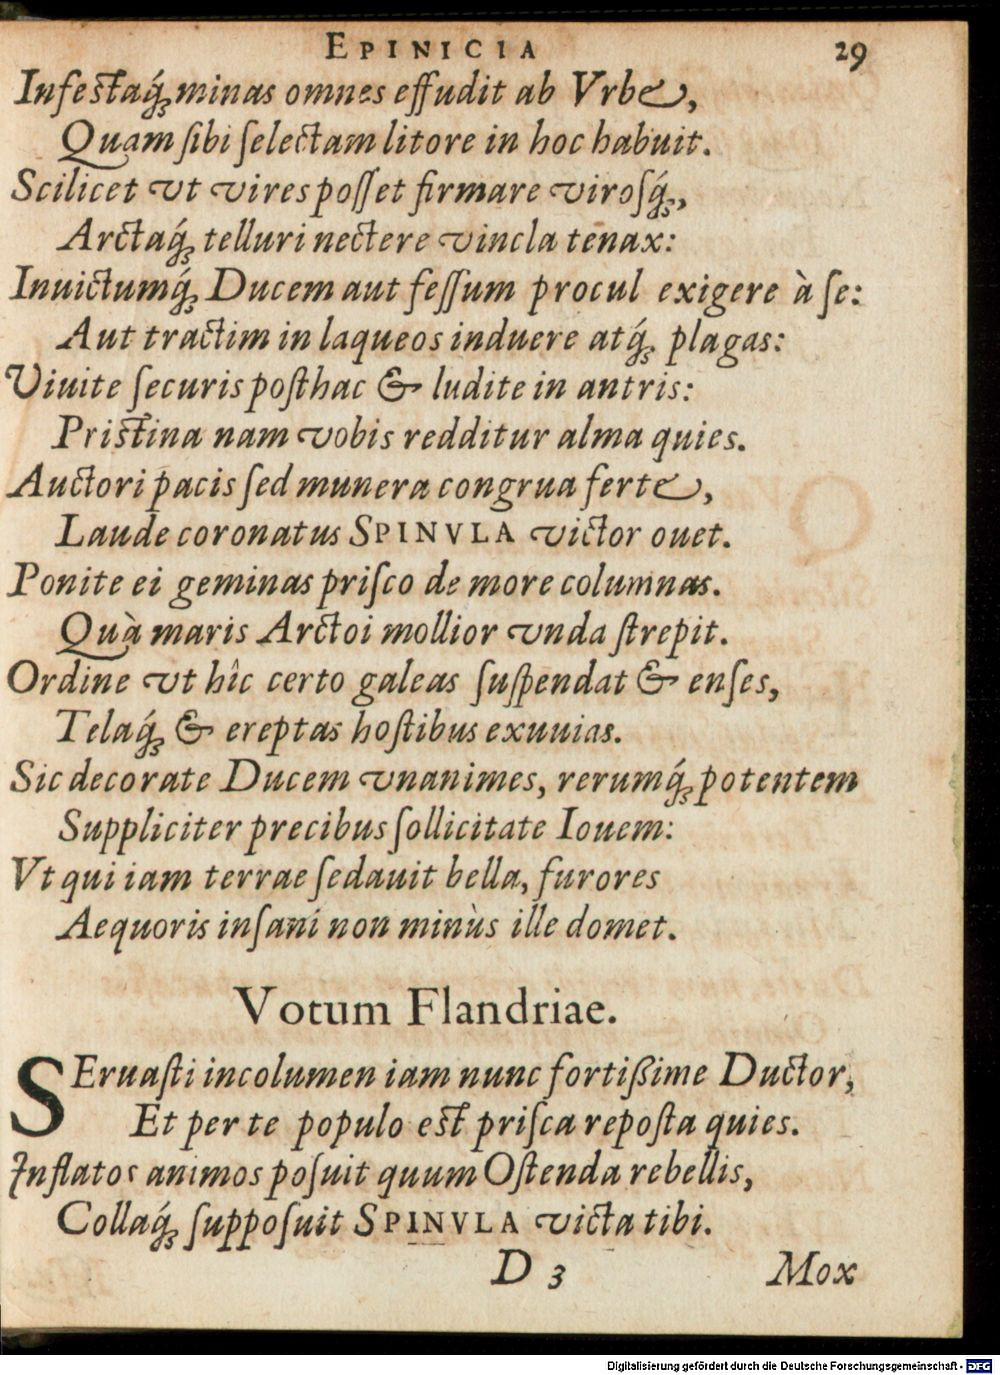 EPINICIA 29
Infestaq́; minas omnes effudit ab Vrbe,
Quam ſibi ſelectam litore in hoc habuit.
Scilicet vt vires poſſet firmare viroſq́;,
Arctaq́; telluri nectere vincla tenax:
Inuictumq́; Ducem aut feſſum procul exigere à ſe:
Aut tractim in laqueos induere atq́; plagas:
Viuite ſecuris poſthac & ludite in antris:
Pristina nam vobis redditur alma quies.
Auctori pacis ſed munera congrua ferte,
Laude coronatus SPINVLA victor ouet.
Ponite ei geminas priſco de more columnas.
Quà maris Arctoi mollior vnda ſtrepit.
Ordine vt hîc certo galeas ſuſpendat & enſes,
Telaq́; & ereptas hoſtibus exuuias.
Sic decorate Ducem vnanimes, rerumq́; potentem
Suppliciter precibus ſollicitate Iouem:
Vt qui iam terrae ſedauit bella, furores
Aequoris inſani non minùs ille domet.
Votum Flandriae.
SEruaſti incolumen iam nunc fortißime Ductor,
Et per te populo est priſca repoſta quies.
Inflatos animos poſuit quum Oſtenda rebellis,
Collaq́; ſuppoſuit SPINVLA victa tibi.
D 3 Mox
Digitalisierung gefördert durch die Deutsche Forschungsgemeinschaft - DFG